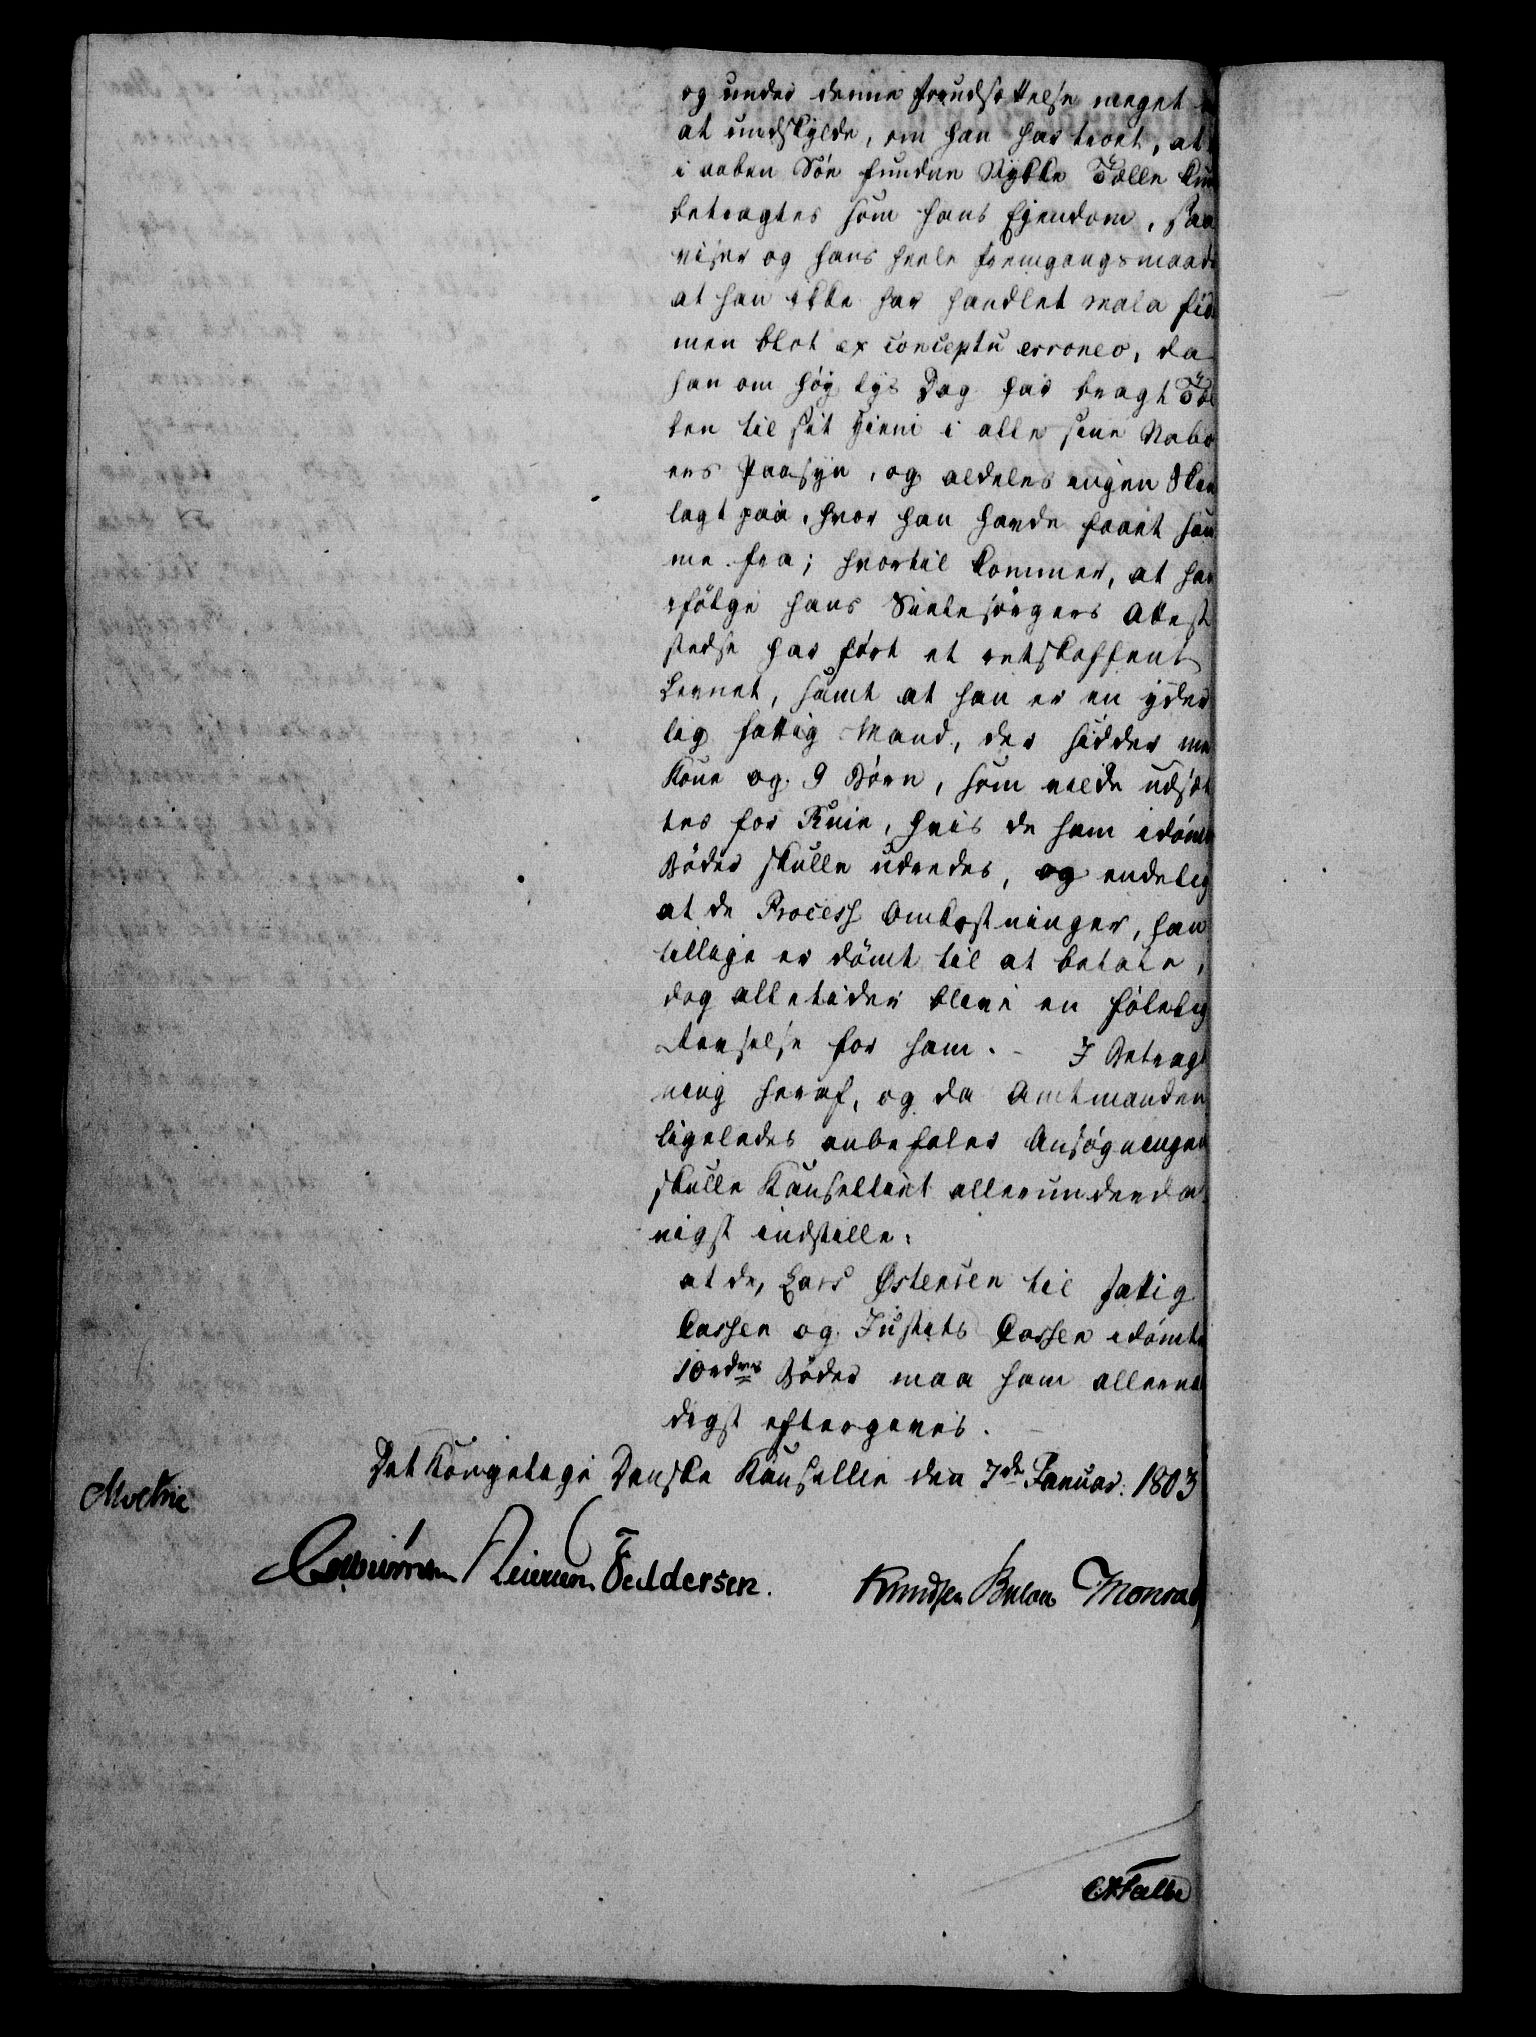 og under denne Forudsættelse meget
at undskylde, om han har troet, at
i aaben Söe fundne Stykke Tælle kun
betragtes som hans Ejendom, saa
viser og hans heele Fremgangsmaade
at han ikke har handlet mala fide
men blot ex conceptu erroneo, da
han om høj lys Dag har bragt Tæl
len til sit Hiem i alle sine Nabo
ers Paasyn, og aldeles ingen Skiul
lagt paa, hvor han havde faaet sam
me fra; hvortil kommer, at han
ifölge hans Sielesörgers Attest
stedse har ført et retskaffent
Levnet, samt at han er en yder
lig fattig Mand, der sidder med
Kone og 9 Börn, som vilde udsæt
tes for Ruin, hvis de ham idömte
Böder skulle udredes, og endelig
at de Process Omkostninger, han
tillige er dömt til at betale,
dog alletider blive en fölelig
Revselse for ham. - I Betragt
ning heraf, og da Amtmanden
ligeledes anbefaler Ansøgningen
skulle Kanselliet allerunderda
nigst indstille:
at de, Lars Østensen til Fattig
Cassen og Justits Cassen idömte
10 rdrs Böder maa ham allernaa
digst eftergives.
Det Kongelige Danske Kansellie den 7de Januar. 1803
Moltke
Colbiørnsen Feddersen. Knudsen Bülow Monrad